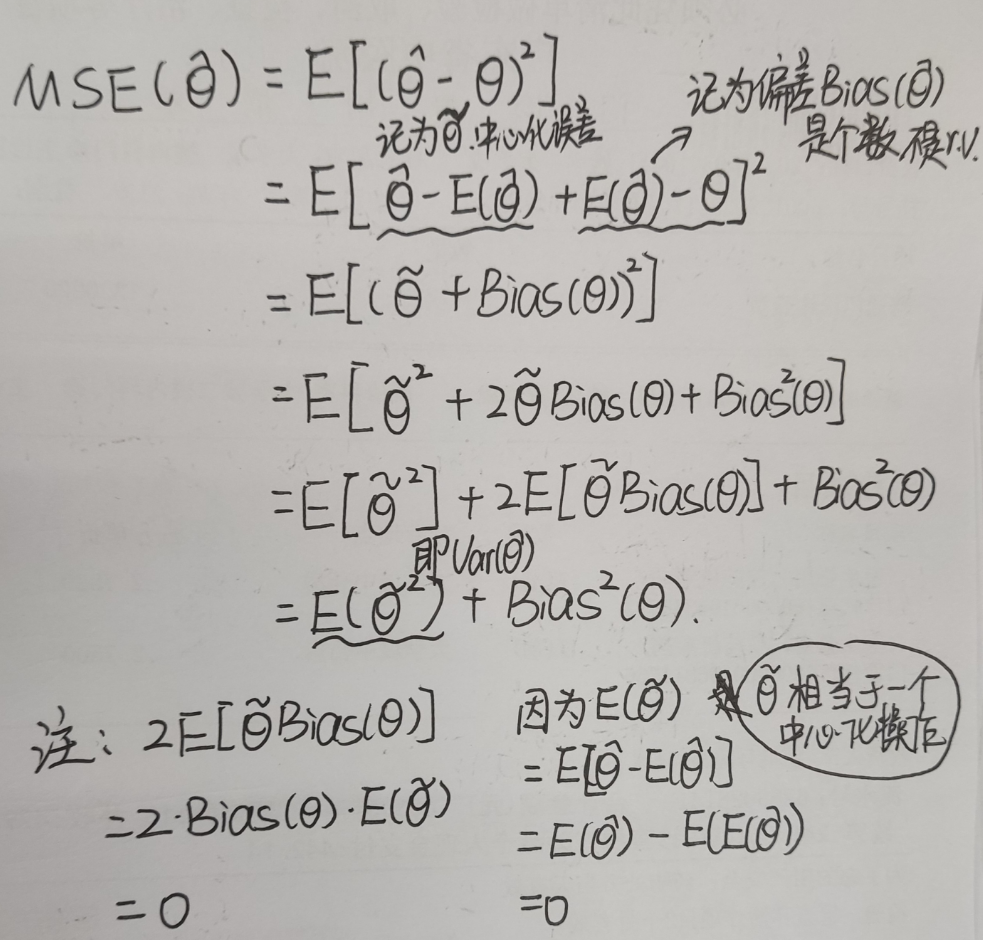 MSE(θ̂) = E[(θ̂ - θ)²]
记为θ̃.中心化误差
记为偏差Bias(θ̂)
是个数,不是r.v.
= E[θ̂ - E(θ̂) + E(θ̂) - θ]²
= E[(θ̃ + Bias(θ))²]
= E[θ̃² + 2θ̃Bias(θ) + Bias²(θ)]
= E[θ̃²] + 2E[θ̃Bias(θ)] + Bias²(θ)
即Var(θ̂)
= E(θ̃²) + Bias²(θ).
注: 2E[θ̃Bias(θ)]
= 2·Bias(θ)·E(θ̃)
= 0
因为E(θ̃)
θ̃相当于一个
中心化操作
= E[θ̂ - E(θ̂)]
= E(θ̂) - E(E(θ̂))
= 0